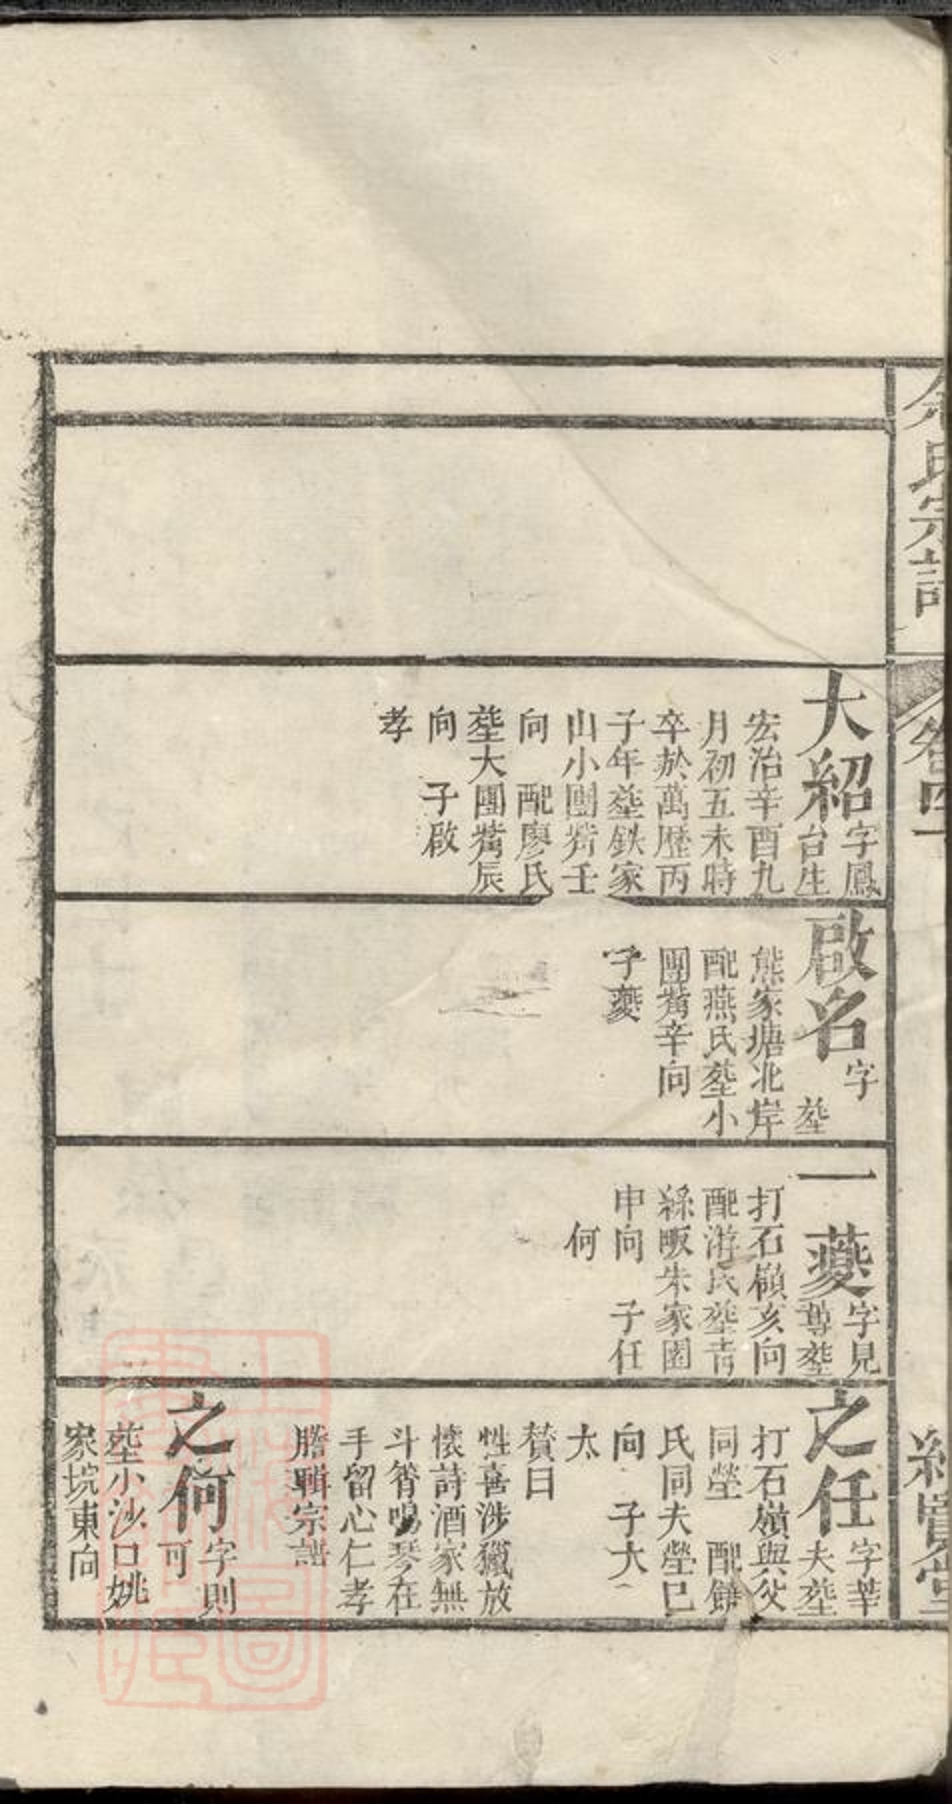 余氏宗譜
卷四
大紹字鳳
台生
宏治辛酉九
月初五未時
卒於萬歷丙
子年塟鉄家
山小團嘴壬
向　配廖氏
塟大團嘴辰
向　子啟
孝
啟名字
塟
熊家塘北岸
配燕氏塟小
團嘴辛向
子夔
一夔字見
尊塟
打石嶺亥向
配游氏塟青
絲畈朱家園
申向　子任
何
之任字莘
夫塟
打石嶺與父
同塋　配
氏同夫塋巳
向　子大
太
贊曰
性喜涉獵放
懷詩酒家無
斗筲鳴琴在
手留心仁孝
謄輯宗譜
之何字則
可
塟小沙口姚
家垸東向